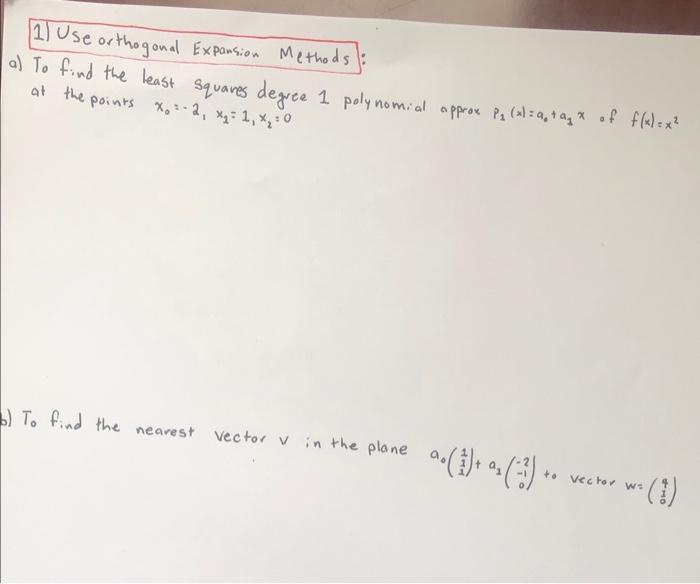 1) Use orthogonal Expansion Methods:
a) To find the least squares degree 1 polynomial approx P₁(x)=a₀+a₁x of f(x)=x²
at the points x₀=-2, x₁=1, x₂=0
b) To find the nearest vector v in the plane a₀(1 1 1)+ a₁(-2 -1 0) to vector w=(4 1 0)